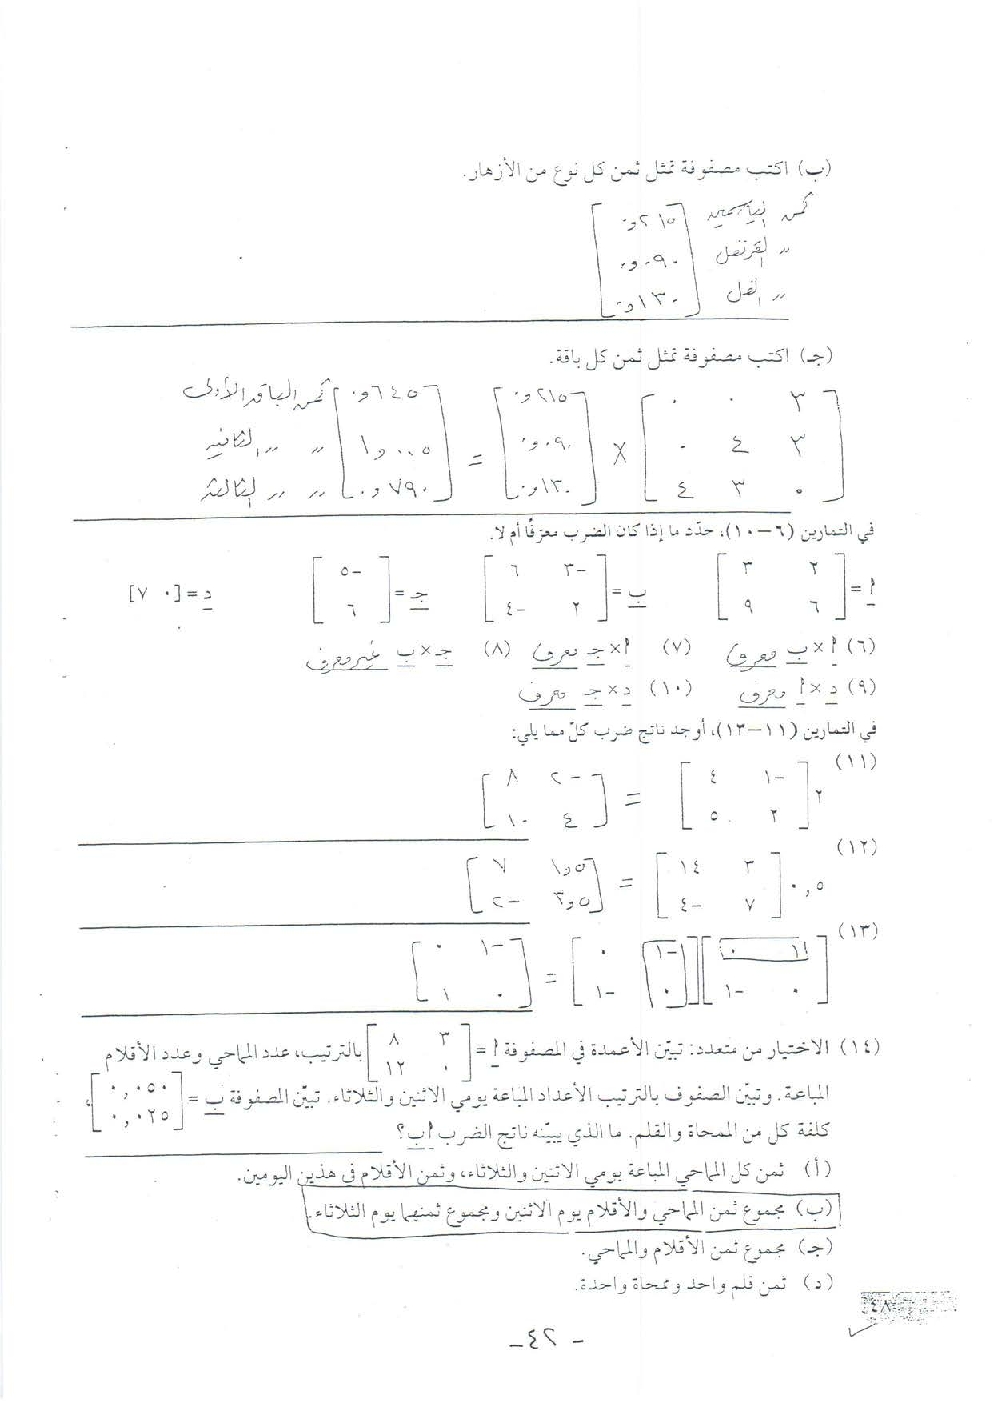 (ب) اكتب مصفوفة تمثل ثمن كل نوع من الأزهار.
ثمن الياسمين ٢١٥و٠
〃 القرنفل ٠٩٠و٠
〃 الفل ١٣٠و٠
(جـ) اكتب مصفوفة تمثل ثمن كل باقة.
٣ ٠ ٠ ٢١٥و٠ ٦٤٥و٠ ثمن الباقة الأولى
٣ ٤ ٠ × ٠٩٠و٠ = ٠٠٥و١ 〃 〃 الثانية
٠ ٣ ٤ ١٣٠و٠ ٧٩٠و٠ 〃 〃 الثالثة
في التمارين (٦–١٠)، حدّد ما إذا كان الضرب معرّفًا أم لا.
أ = [٢ ٣ ب = [−٣ ٦ جـ = [−٥ د = [٠ ٧]
٦ ٩] ٢ −٤] ٦]
(٦) أ × ب معرف (٧) أ × جـ معرف (٨) جـ × ب غير معرف
(٩) د × أ معرف (١٠) د × جـ معرف
في التمارين (١١–١٣)، أوجد ناتج ضرب كلّ مما يلي:
(١١)
٢ [−١ ٤ = [−٢ ٨
٢ ٥] ٤ ١٠]
(١٢)
٠,٥ [٣ ١٤ = [٥و١ ٧
٧ −٤] ٥و٣ −٢]
(١٣)
[١ ٠ [−١ ٠ = [−١ ٠
٠ −١] ٠ −١] ٠ ١]
(١٤) الاختيار من متعدد: تبيّن الأعمدة في المصفوفة أ = [٣ ٨ بالترتيب، عدد المماحي وعدد الأقلام
٠ ١٢]
المباعة. وتبيّن الصفوف بالترتيب الأعداد المباعة يومي الاثنين والثلاثاء. تبيّن الصفوفة ب = [٠,٠٥٠
٠,٠٢٥]،
كلفة كل من الممحاة والقلم. ما الذي يبيّنه ناتج الضرب أ ب؟
(أ) ثمن كل المماحي المباعة يومي الاثنين والثلاثاء، وثمن الأقلام في هذين اليومين.
(ب) مجموع ثمن المماحي والأقلام يوم الاثنين ومجموع ثمنهما يوم الثلاثاء.
(جـ) مجموع ثمن الأقلام والمماحي.
(د) ثمن قلم واحد وممحاة واحدة.
٤٨
- ٢٤ -